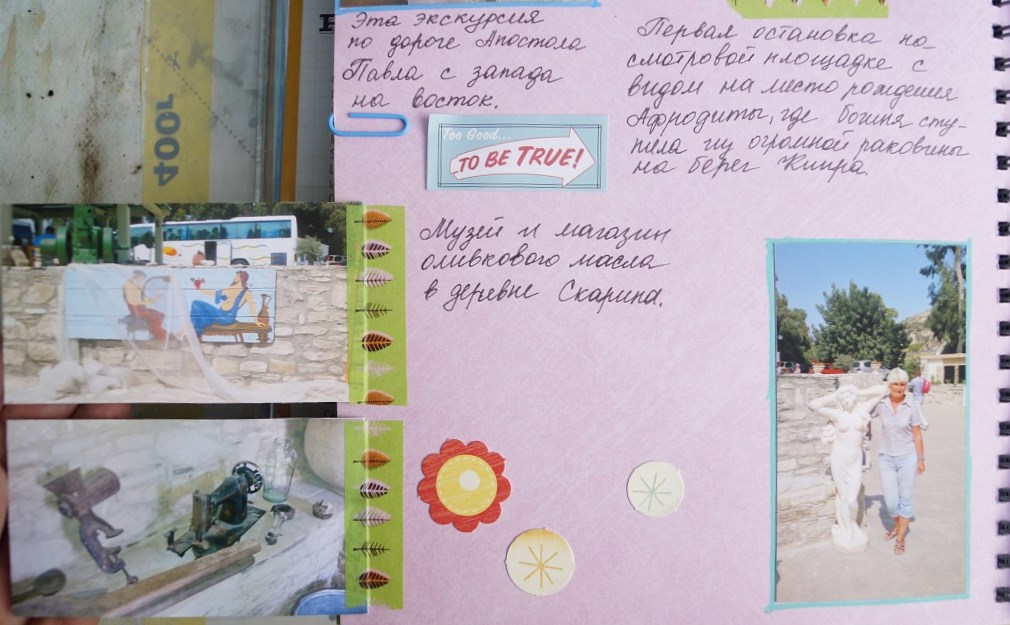 Эта экскурсия
по дороге Апостола
Павла с запада
на восток.
Первая остановка на
смотровой площадке с
видом на место рождения
Афродиты, где богиня сту-
пила из огромной раковины
на берег Кипра.
Too Good...
...TO BE TRUE!
Музей и магазин
оливкового масла
в деревне Скарина.
400г